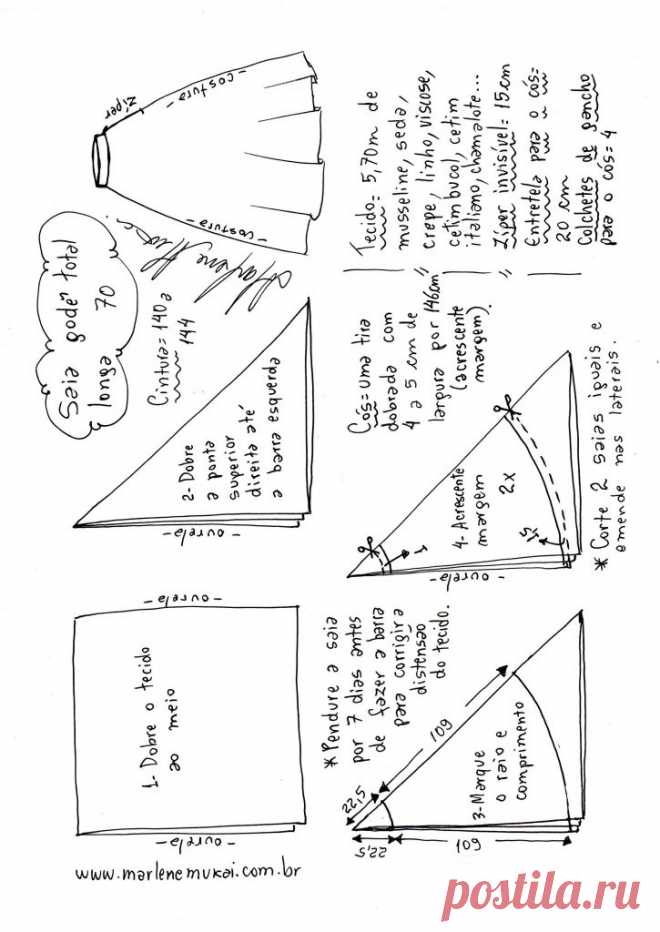 Saia godê total
longa 70
Cintura= 140 a
144
Zíper
- costura -
- costura -
Marlene Mukai
Tecido= 5,70m de
musseline, seda,
crepe, linho, viscose,
cetim bucol, cetim
italiano, chamalote...
Zíper invisível= 15cm
Entretela para o cós=
20 cm
Colchetes de gancho
para o cós= 4
- ourela -
1- Dobre o tecido
ao meio
- ourela -
2- Dobre
a ponta
superior
direita até
a barra esquerda
- ourela -
www.marlenemukai.com.br
*Pendure a saia
por 7 dias antes
de fazer a barra
para corrigir a
distensão
do tecido.
22,5
109
3-Marque
o raio e
comprimento
22,5
109
Cós= uma tira
dobrada com
4 a 5 cm de
largura por 146cm
(acrescente
margem).
4- Acrescente
margem
2x
1
1,5
- ourela -
* Corte 2 saias iguais e
emende nas laterais.
postila.ru